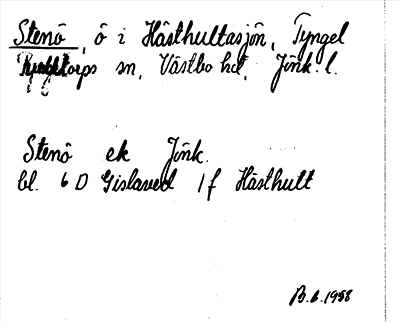 Stenö, ö i Hästhultasjön, Tyngel
torps sn, Västbo hd, Jönk. l.
Stenö ek Jönk.
bl. 6 D Gislaved 1 f Hästhult
B.b. 1958